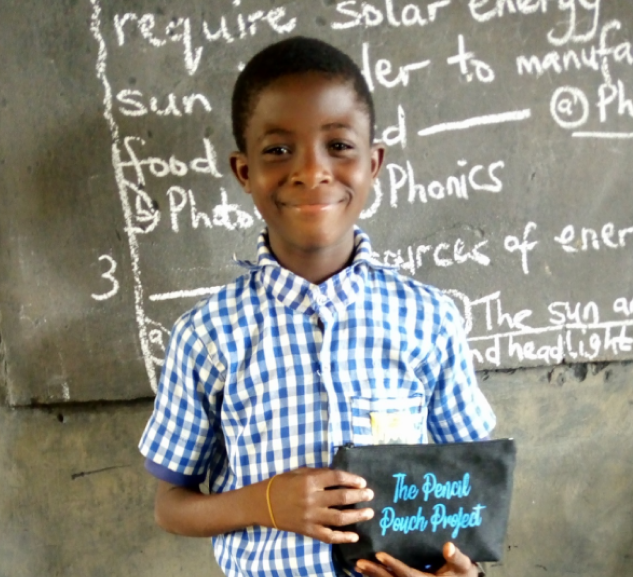 require solar energy
sun der to manufa
food d ⓐ Ph
ⓑ Photo Phonics
3 ources of ener
ⓐ The sun a
nd headlight
The Pencil
Pouch Project